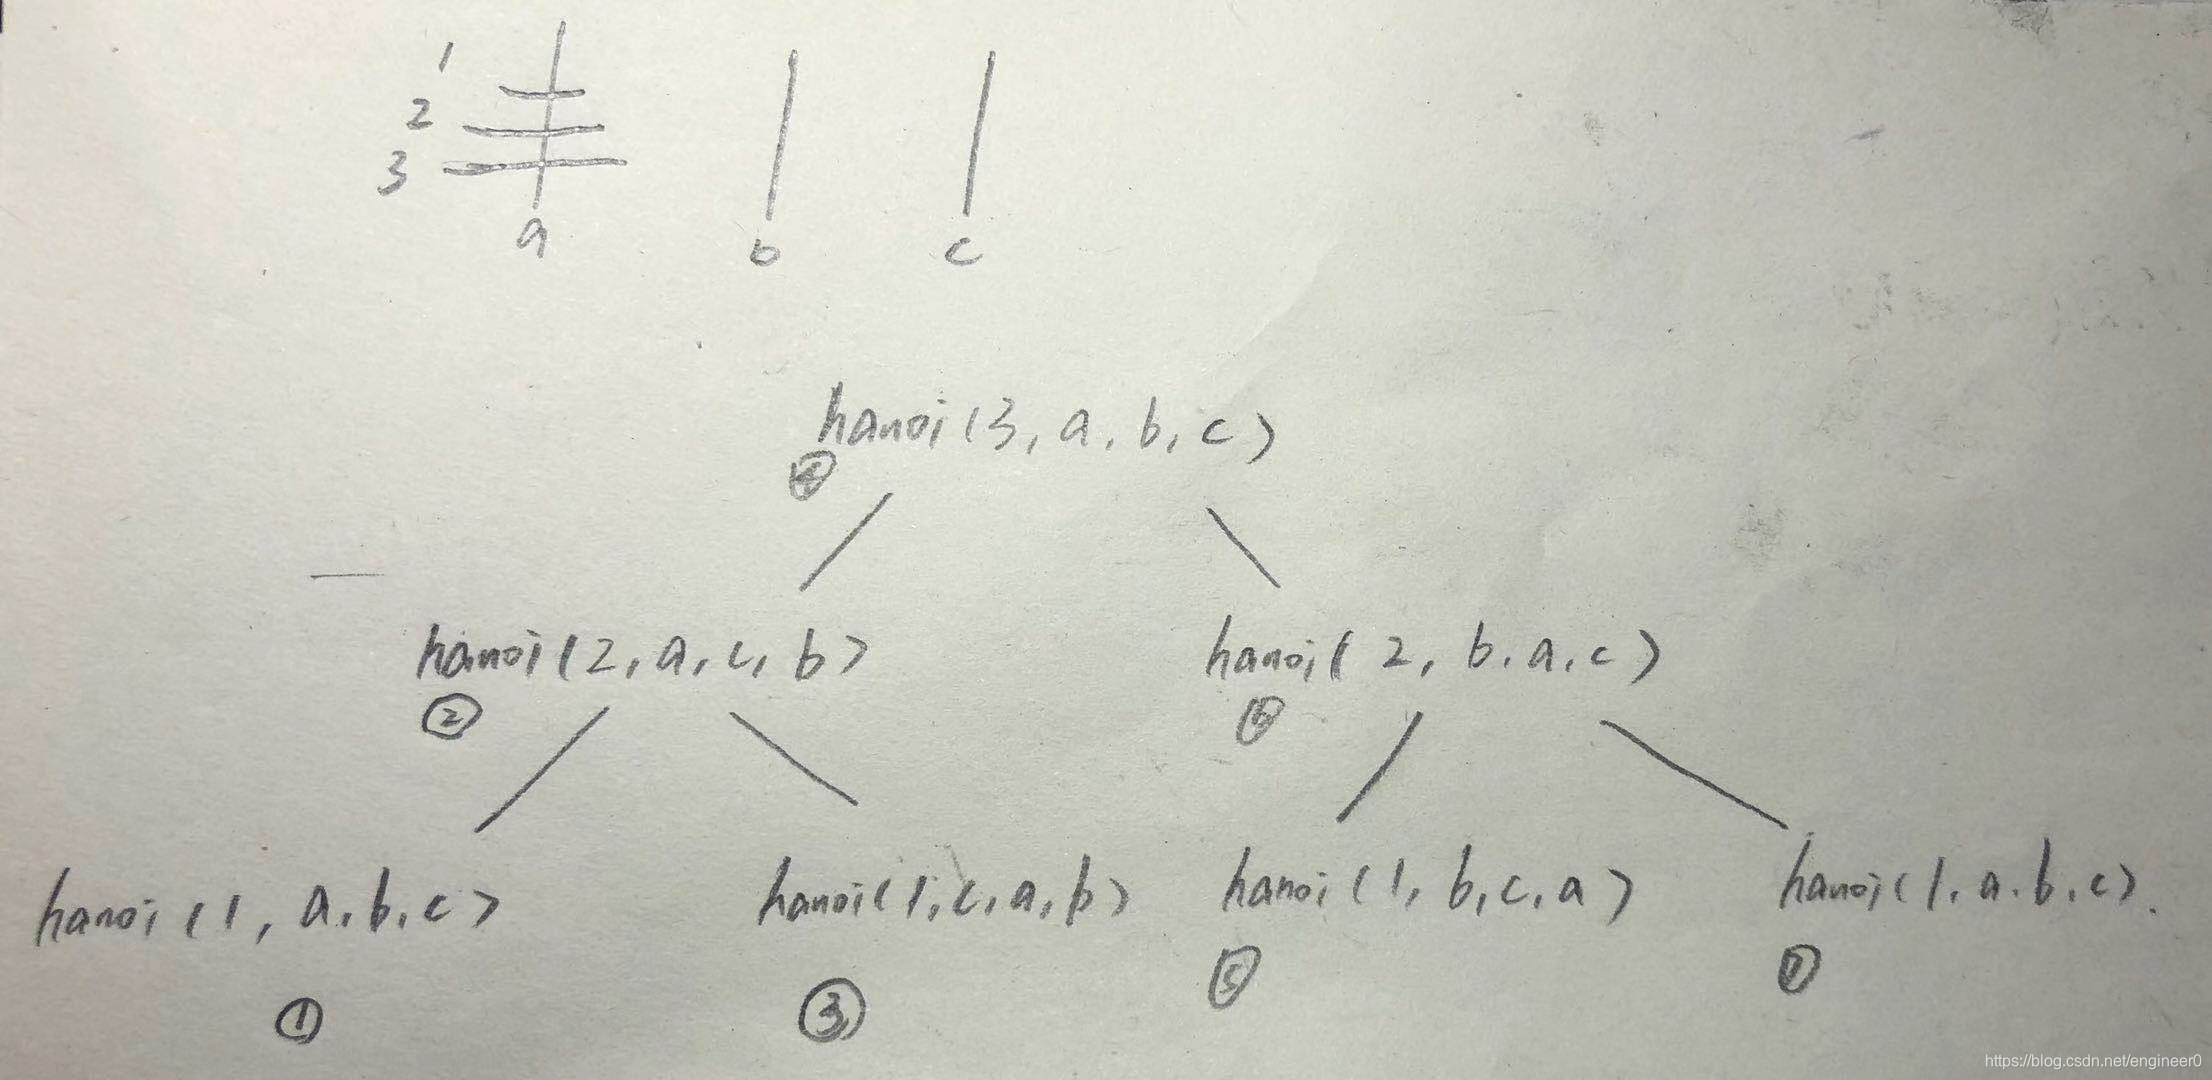 1
2
3
a b c
hanoi(3, a, b, c)
④
hanoi(2, a, c, b) hanoi(2, b, a, c)
② ⑥
hanoi(1, a, b, c) hanoi(1, c, a, b) hanoi(1, b, c, a) hanoi(1, a, b, c).
① ③ ⑤ ⑦
https://blog.csdn.net/engineer0